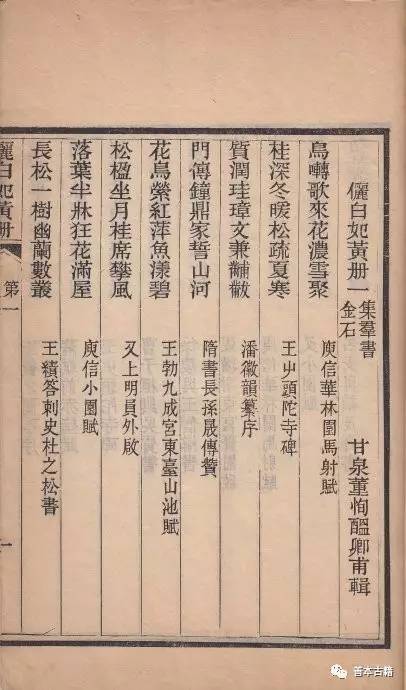 儷白妃黃册一
集羣書
金石
甘泉董恂醞卿甫輯
鳥囀歌來花濃雪聚 庾信華林園馬射賦
桂深冬暖松疏夏寒 王屮頭陀寺碑
質潤珪璋文兼黼黻 潘徽韻纂序
門傳鐘鼎家誓山河 隋書長孫晟傳贊
花鳥縈紅蓱魚漾碧 王勃九成宮東臺山池賦
松楹坐月桂席攀風 又上明員外啟
落葉半牀狂花滿屋 庾信小園賦
長松一樹幽蘭數叢 王績答刺史杜之松書
儷白妃黃册 第一 一
善本古籍